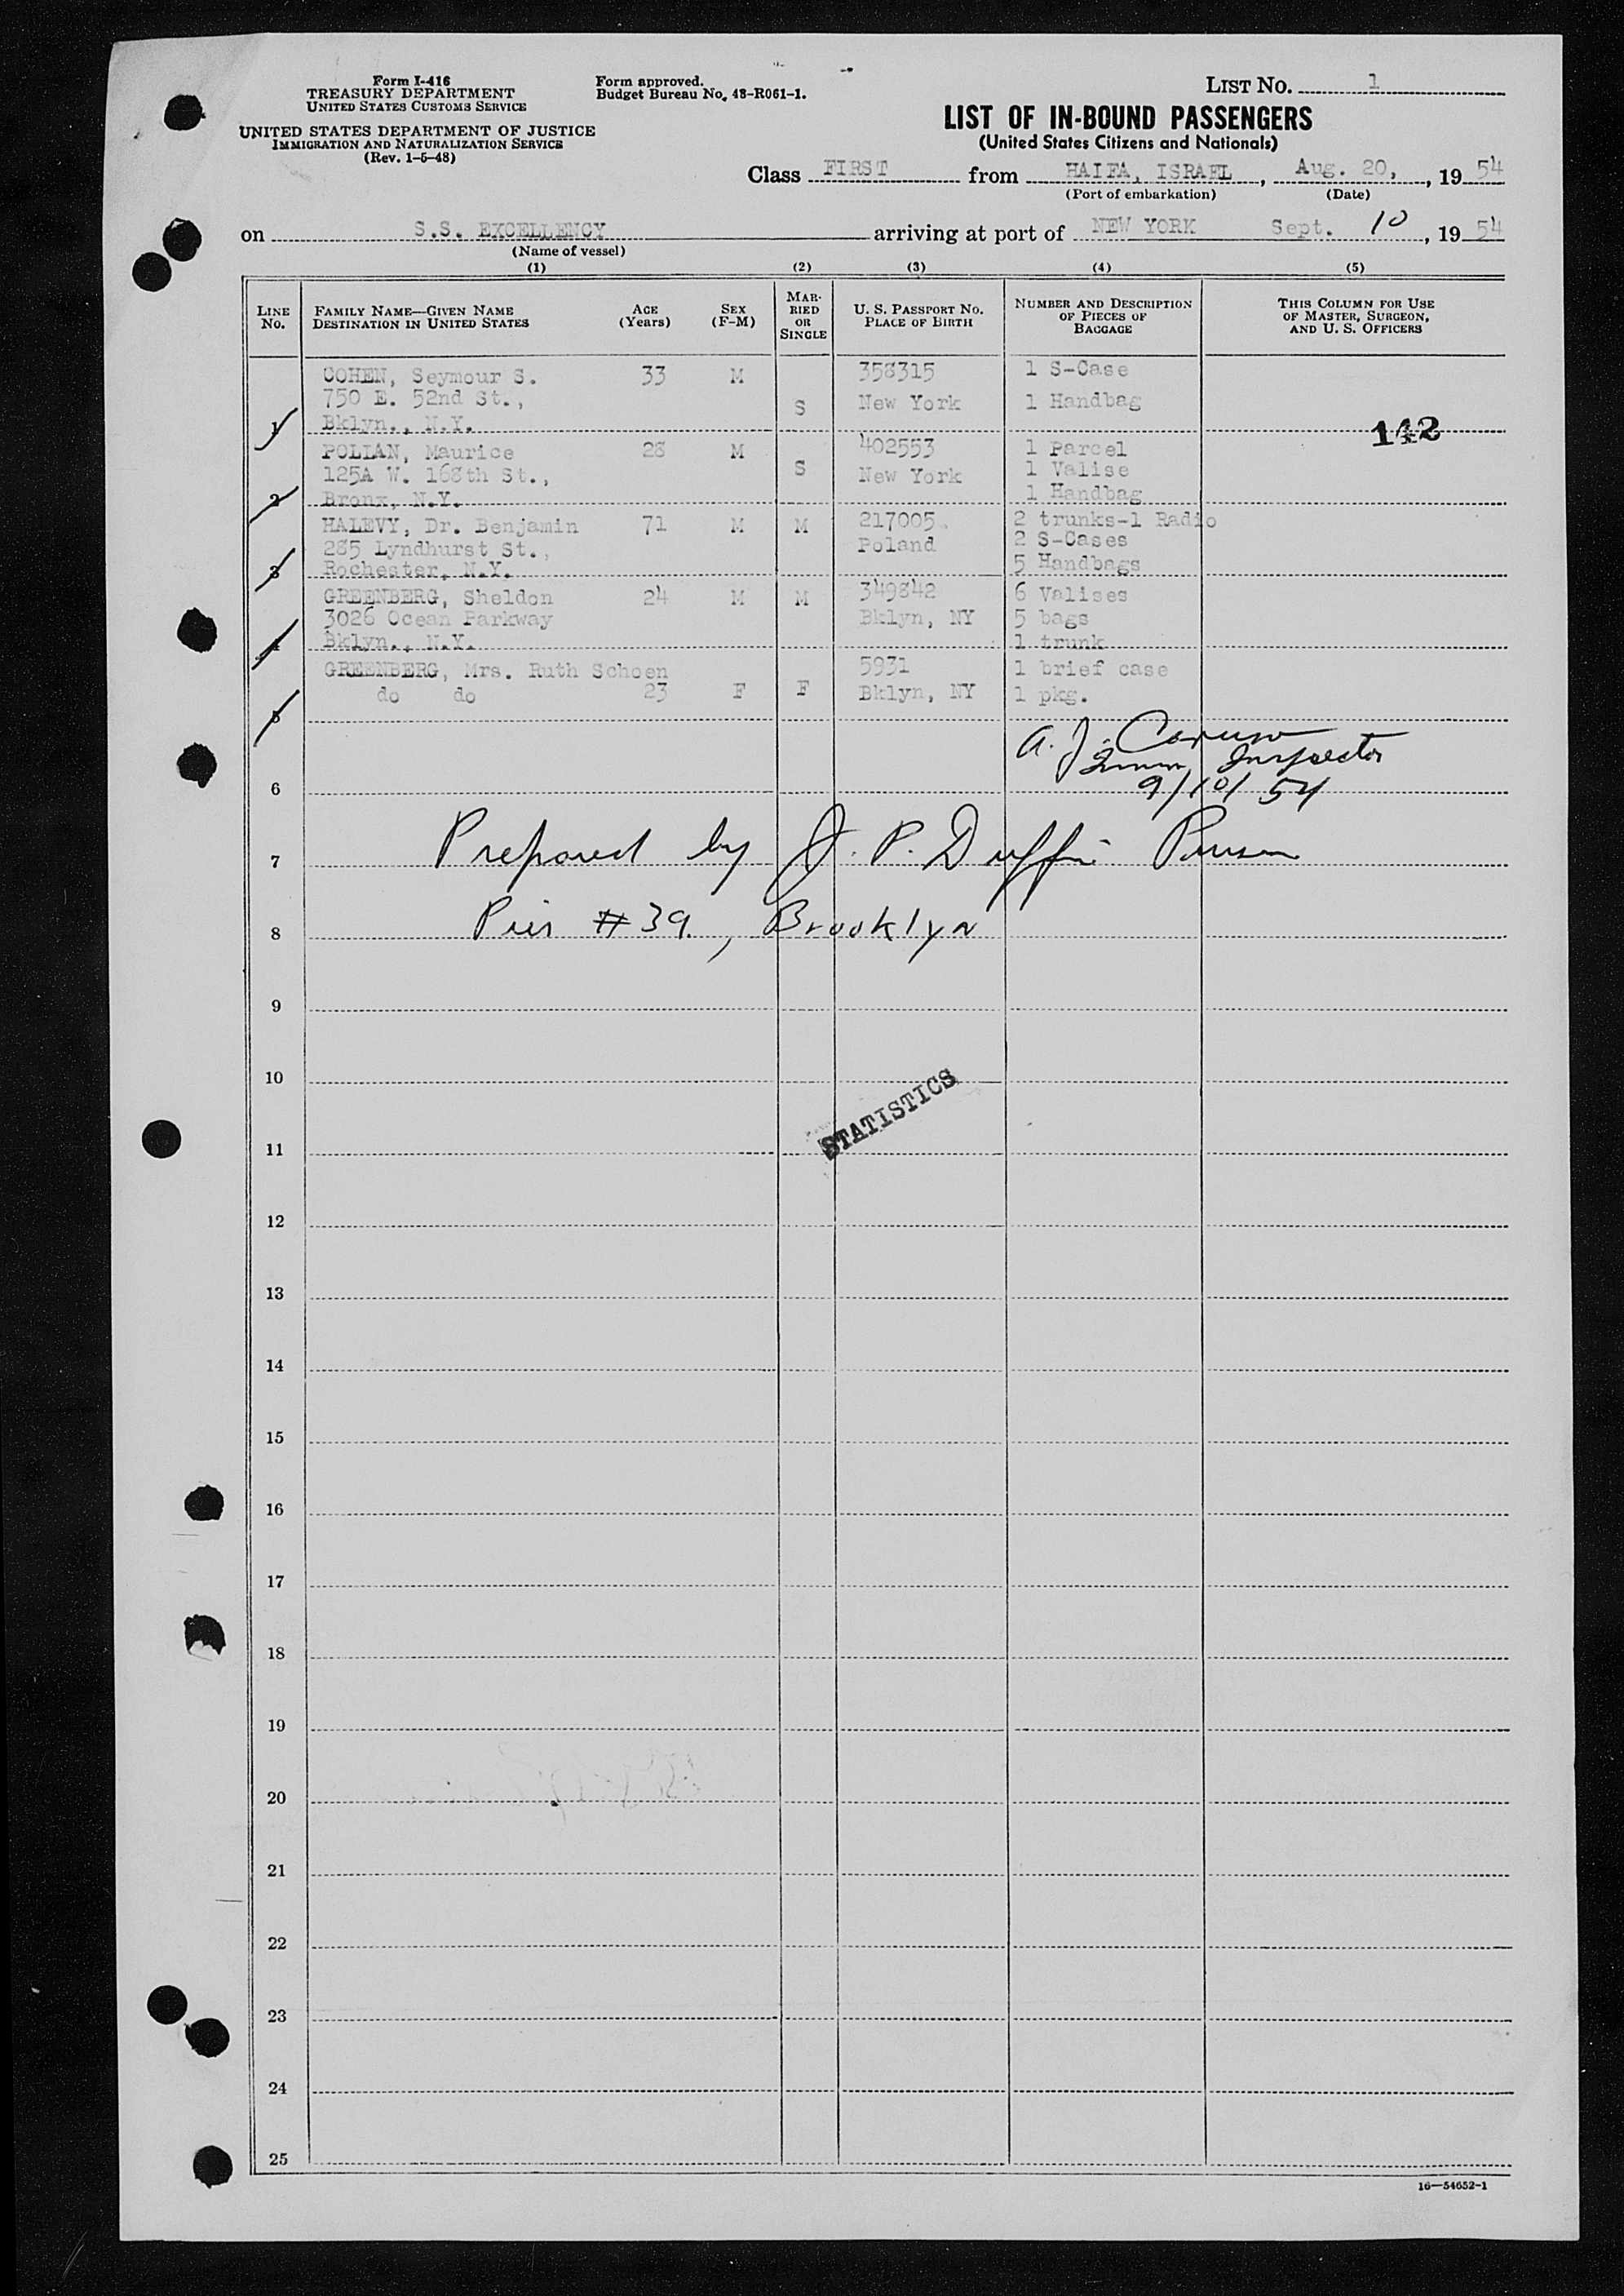 Form I-416
TREASURY DEPARTMENT
UNITED STATES CUSTOMS SERVICE
UNITED STATES DEPARTMENT OF JUSTICE
IMMIGRATION AND NATURALIZATION SERVICE
(Rev. 1-5-48)
Form approved.
Budget Bureau No. 48-R061-1.
LIST No. 1
LIST OF IN-BOUND PASSENGERS
(United States Citizens and Nationals)
Class FIRST from HAIFA, ISRAEL, Aug. 20, , 19 54
(Port of embarkation) (Date)
on S.S. EXCELLENCY arriving at port of NEW YORK Sept. 10, 19 54
(Name of vessel)
(1) (2) (3) (4) (5)
LINE No. FAMILY NAME—GIVEN NAME DESTINATION IN UNITED STATES AGE (Years) SEX (F-M) MARRIED OR SINGLE U. S. PASSPORT NO. PLACE OF BIRTH NUMBER AND DESCRIPTION OF PIECES OF BAGGAGE THIS COLUMN FOR USE OF MASTER, SURGEON, AND U. S. OFFICERS
COHEN, Seymour S. 33 M 358315 1 S-Case
750 E. 52nd St., S New York 1 Handbag
1 Bklyn., N.Y. 142
POLIAN, Maurice 28 M 402553 1 Parcel
125A W. 168th St., S New York 1 Valise
2 Bronx, N.Y. 1 Handbag
HALEVY, Dr. Benjamin 71 M M 217005 2 trunks-1 Radio
285 Lyndhurst St., Poland 2 S-Cases
3 Rochester, N.Y. 5 Handbags
GREENBERG, Sheldon 24 M M 349842 6 Valises
3026 Ocean Parkway Bklyn, NY 5 bags
4 Bklyn., N.Y. 1 trunk
GREENBERG, Mrs. Ruth Schoen 5931 1 brief case
do do 23 F F Bklyn, NY 1 pkg.
5
A. J. Caruso
Immn Inspector
6 9/10/54
7 Prepared by J. P. Duffie Purser
8 Pier #39, Brooklyn
9
10
STATISTICS
11
12
13
14
15
16
17
18
19
20
21
22
23
24
25
16—54652-1